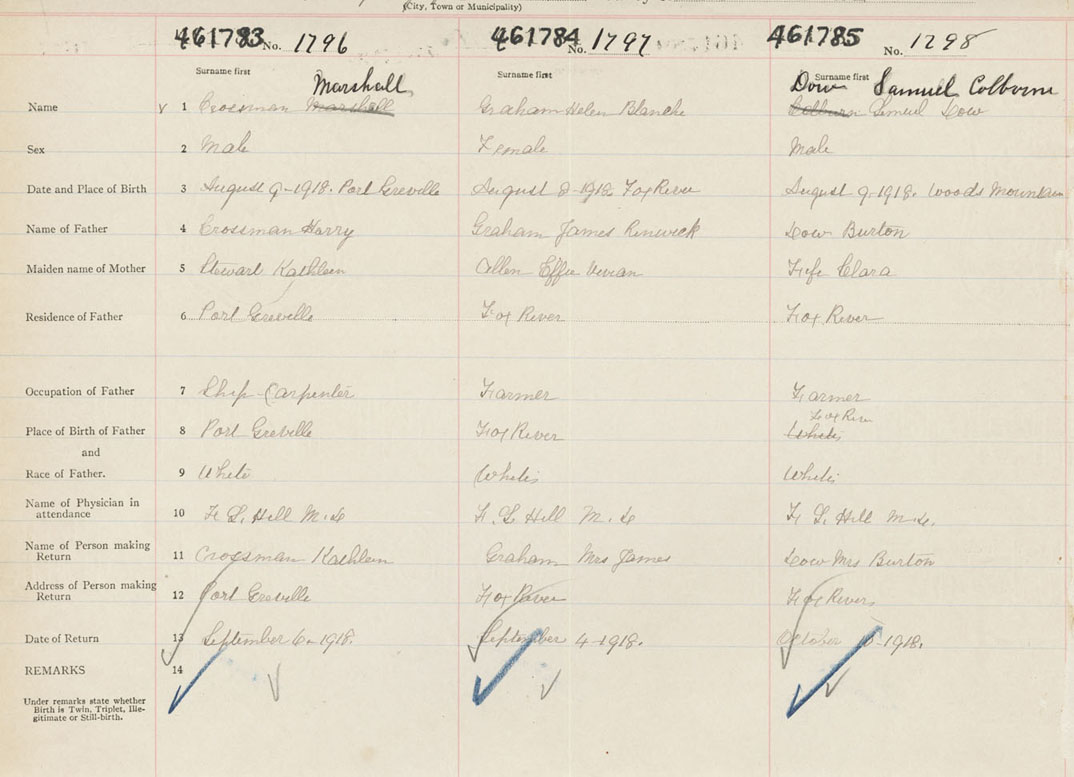 (City, Town or Municipality)
461783 No. 1796 461784 No. 1797 461785 No. 1298
Surname first Surname first Surname first
Marshall Dow Samuel Colborne
Name 1 Crossman Marshall Graham Helen Blanche Colburn Lemuel Dow
Sex 2 Male Female Male
Date and Place of Birth 3 August 9-1918. Port Greville August 8-1918 Fox River August 9-1918. Woods Mountain
Name of Father 4 Crossman Harry Graham James Renwick Dow Burton
Maiden name of Mother 5 Stewart Kathleen Allen Effie Vivian Fife Clara
Residence of Father 6 Port Greville Fox River Fox River
Occupation of Father 7 Ship Carpenter Farmer Farmer
Fox River
Place of Birth of Father 8 Port Greville Fox River White
and
Race of Father. 9 White White White
Name of Physician in
attendance 10 F. L. Hill M.D F. L. Hill M.D F L. Hill M.D.
Name of Person making
Return 11 Crossman Kathleen Graham Mrs James Dow Mrs Burton
Address of Person making
Return 12 Port Greville Fox River Fox River
Date of Return 13 September 6-1918. September 4-1918. October -1918.
REMARKS 14
Under remarks state whether
Birth is Twin, Triplet, Ille-
gitimate or Still-birth.